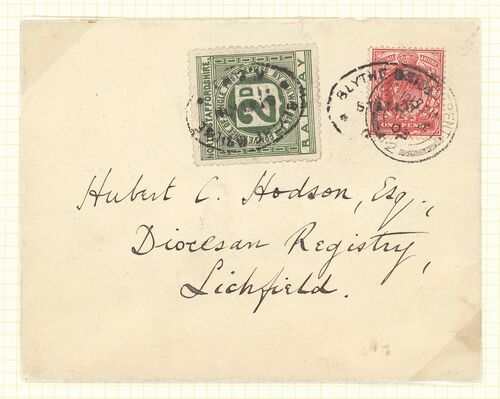 NORTH STAFFORDSHIRE
RAILWAY
2D
BLYTHE
ONE PENNY
Hubert C. Hodson, Esq.,
Diocesan Registry,
Lichfield.